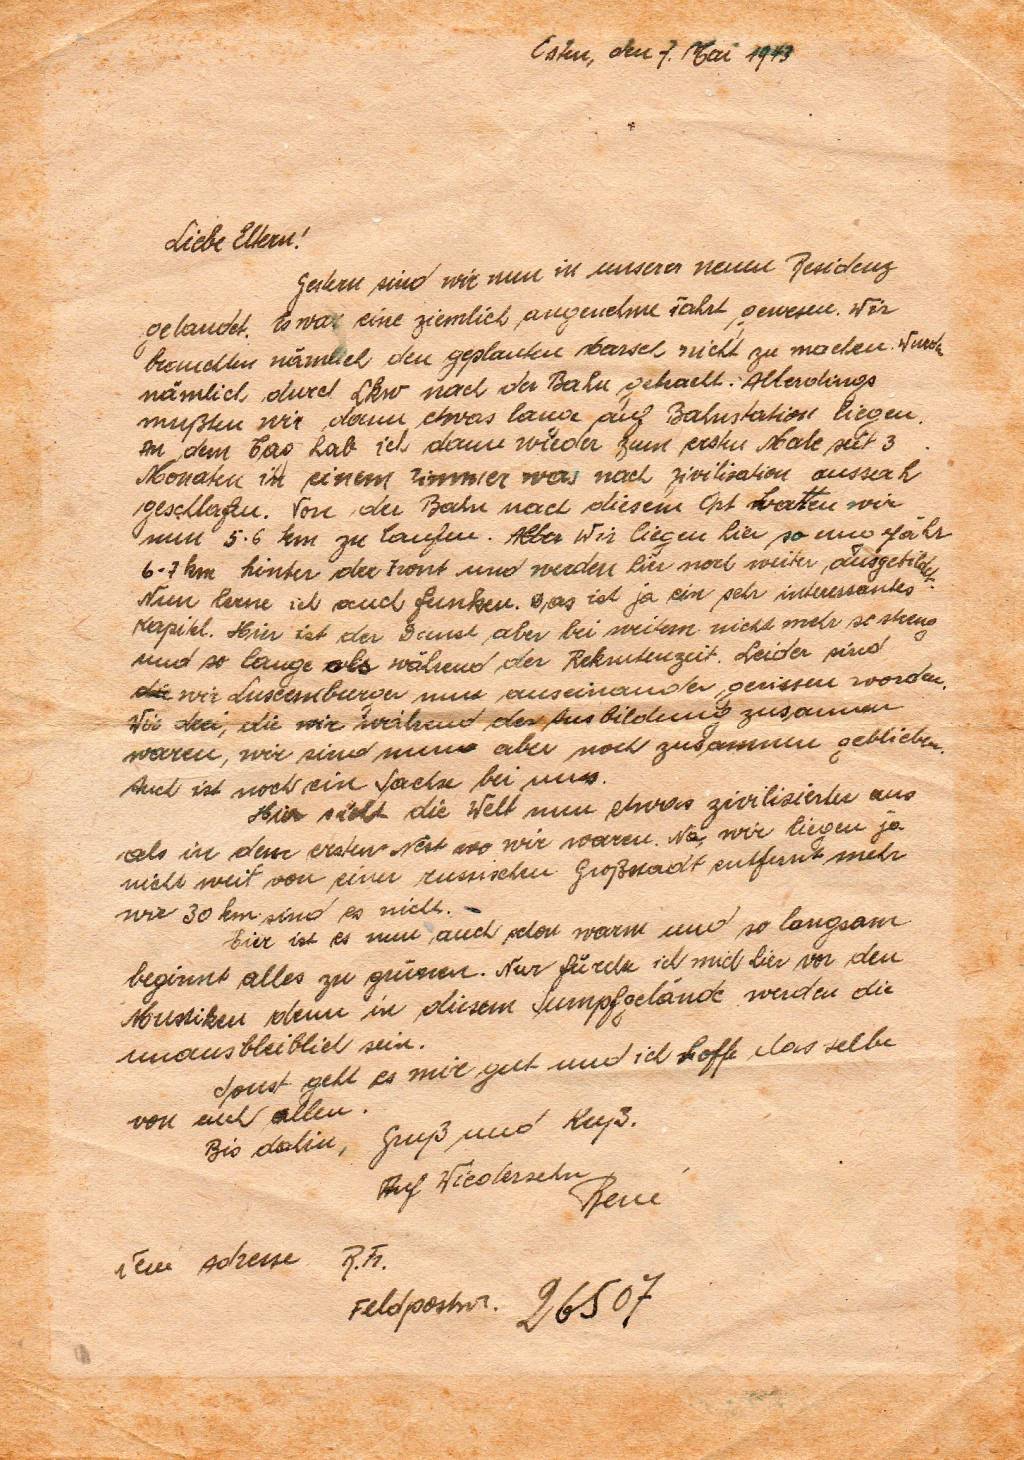 Osten, den 7. Mai 1943
Liebe Eltern!
Gestern sind wir nun in unserer neuen Residenz
gelandet. Es war eine ziemlich angenehme Fahrt gewesen. Wir
brauchten nämlich den geplanten Marsch nicht zu machen. Wurden
nämlich durch Lkw nach der Bahn gebracht. Allerdings
mußten wir dann etwas lange auf Bahnstation liegen.
An dem Tag hab ich dann wieder zum ersten Male seit 3
Monaten in einem Zimmer was nach Zivilisation aussah
geschlafen. Von der Bahn nach diesem Ort hatten wir
nun 5-6 km zu laufen. Aber Wir liegen hier so ungefähr
6-7 km hinter der Front und werden hier noch weiter ausgebildet.
Nun lerne ich auch funken. Das ist ja ein sehr interessantes
Kapitel. Hier ist der Dienst aber bei weitem nicht mehr so streng
und so lange als während der Rekrutenzeit. Leider sind
die wir Luxemburger nun auseinander gerissen worden.
Wir drei, die wir während der Ausbildung zusammen
waren, wir sind nun aber noch zusammen geblieben.
Auch ist noch ein Sachse bei uns.
Hier sieht die Welt nun etwas zivilisierter aus
als in dem ersten Nest wo wir waren. Na, wir liegen ja
nicht weit von einer russischen Großstadt entfernt mehr
wie 30 km sind es nicht.
Hier ist es nun auch schon warm und so langsam
beginnt alles zu grünen. Nur fürchte ich mich hier vor den
Muskiken denn in diesem Sumpfgelände werden die
unausbleiblich sein.
Sonst geht es mir gut und ich hoffe dasselbe
von euch allen.
Bis dahin, Gruß und Kuß.
Auf Wiedersehn
René
Neue Adresse R.Fr.
Feldpostnr. 26507